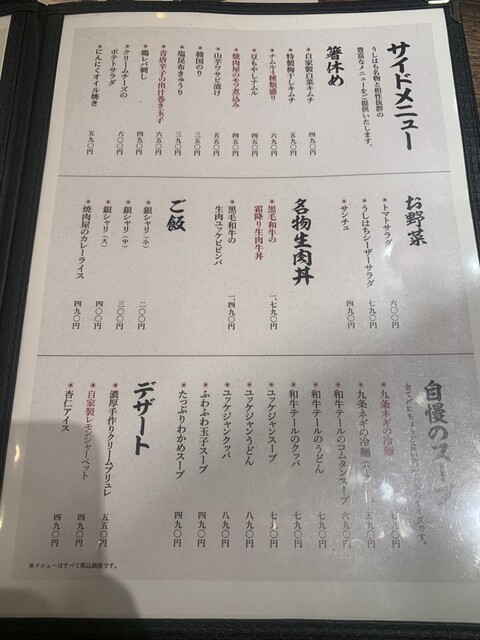 サイドメニュー
うしはち名物と相性抜群の
豊富なメニューをご提供いたします。
箸休め
自家製白菜キムチ 四九〇円
特製梅干しキムチ 五九〇円
ナムル4種類盛り 六九〇円
豆もやしナムル 四五〇円
焼肉屋のモツ煮込み 四五〇円
山芋ワサビ漬け 五五〇円
韓国のり 三五〇円
塩昆布きゅうり 三九〇円
青唐辛子の出汁巻き玉子 六五〇円
鶏レバ刺し
クリームチーズの
ポテトサラダ 六〇〇円
にんにくオイル焼き 五九〇円
お野菜
トマトサラダ 六〇〇円
うしはちシーザーサラダ 七九〇円
サンチュ 四九〇円
名物生肉丼
黒毛和牛の
霜降り生肉牛丼 一、七九〇円
黒毛和牛の
生肉ユッケビビンバ 一、四九〇円
ご飯
銀シャリ（小） 二〇〇円
銀シャリ（中） 三〇〇円
銀シャリ（大） 四〇〇円
焼肉屋のカレーライス 四九〇円
自慢のスープ
九条ネギの冷麺 七九〇円
九条ネギの冷麺 五九〇円
和牛テールのコムタンスープ 六九〇円
和牛テールのうどん 七九〇円
和牛テールのクッパ 七九〇円
ユッケジャンスープ 七九〇円
ユッケジャンうどん 八九〇円
ユッケジャンクッパ 八九〇円
ふわふわ玉子スープ 四九〇円
たっぷりわかめスープ 四九〇円
デザート
濃厚手作りクリームブリュレ 五五〇円
自家製レモンシャーベット 四九〇円
杏仁アイス 四九〇円
※メニューはすべて税込価格です。